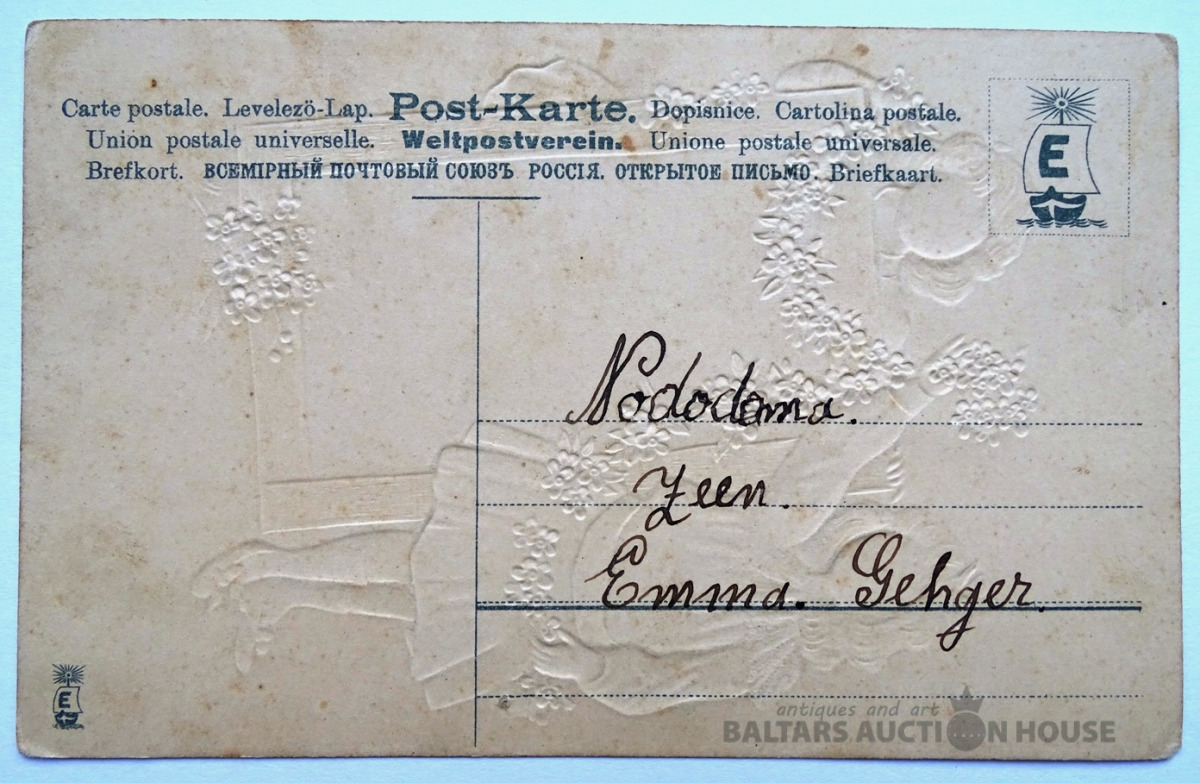 Carte postale. Levelezö-Lap. Post-Karte. Dopisnice. Cartolina postale.
Union postale universelle. Weltpostverein. Unione postale universale.
Brefkort. ВСЕМІРНЫЙ ПОЧТОВЫЙ СОЮЗЪ РОССІЯ. ОТКРЫТОЕ ПИСЬМО. Briefkaart.
E
Nododama.
Zeen.
Emma. Gehger.
E
antiques and art
BALTARS AUCTION HOUSE